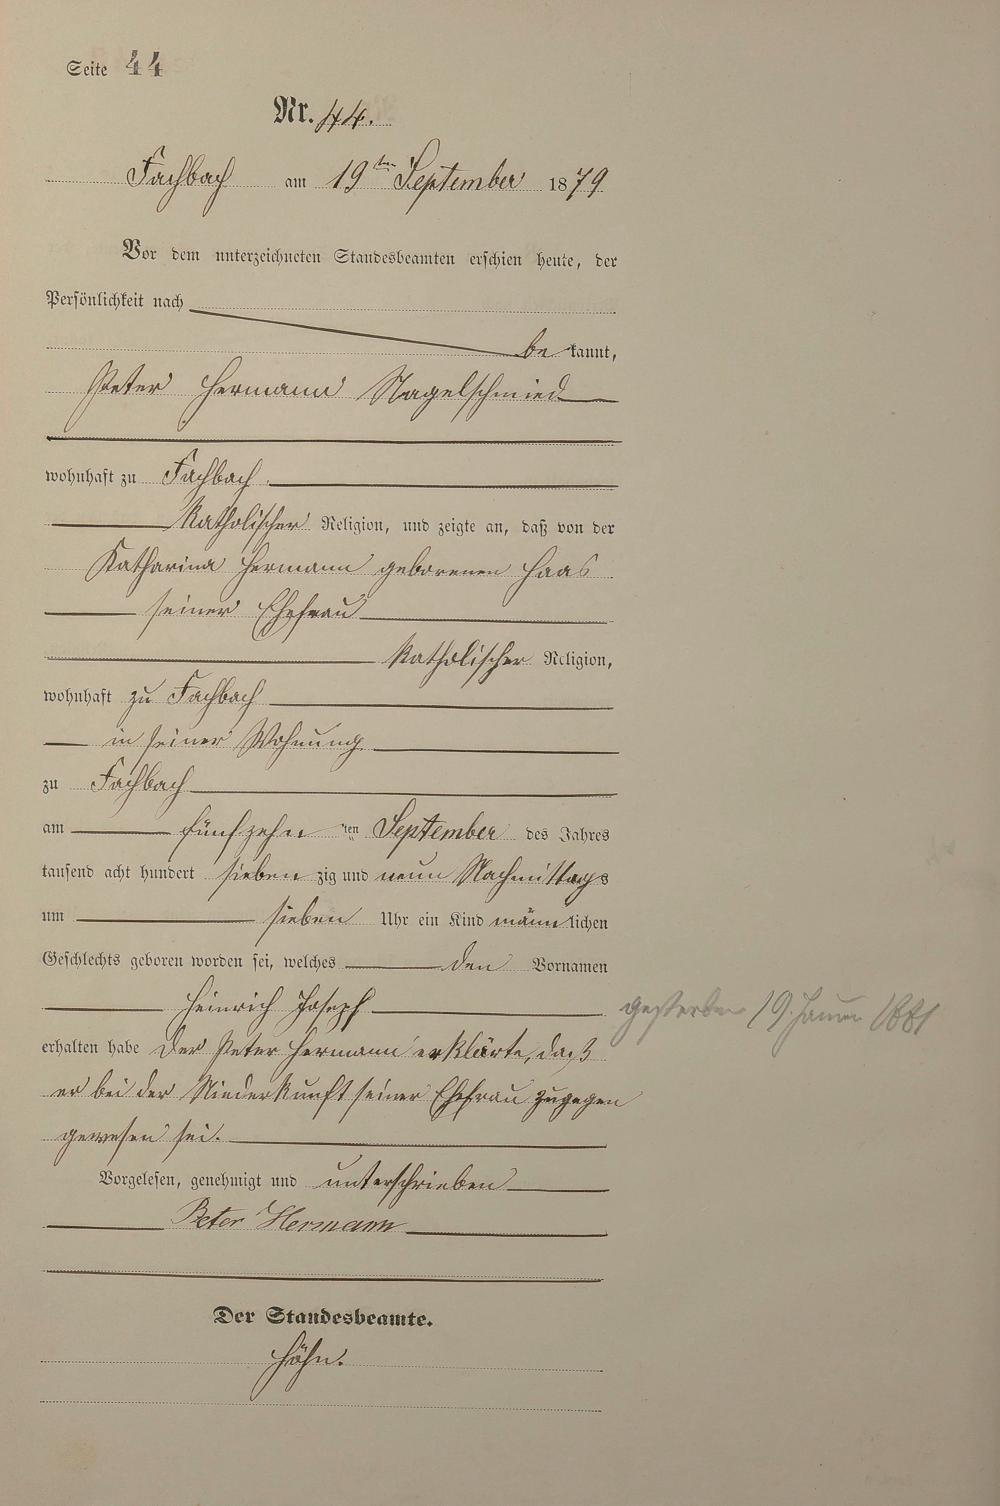 Seite 44
Nr. 44.
Fachbach am 19ten September 1879
Vor dem unterzeichneten Standesbeamten erschien heute, der
Persönlichkeit nach
be kannt,
Peter Hermann Nagelschmied
wohnhaft zu Fachbach
katholischer Religion, und zeigte an, daß von der
Katharina Hermann geborenen Haas
seiner Ehefrau
katholischer Religion,
wohnhaft zu Fachbach
in seiner Wohnung
zu Fachbach
am fünfzehn ten September des Jahres
tausend acht hundert sieben zig und neun Nachmittags
um sieben Uhr ein Kind männ lichen
Geschlechts geboren worden sei, welches den Vornamen
Heinrich Joseph
gestorben 19. Januar 1881
erhalten habe Der Peter Hermann erklärte, daß
er bei der Niederkunft seiner Ehefrau zugegen
gewesen sei.
Vorgelesen, genehmigt und unterschrieben
Peter Hermann
Der Standesbeamte.
Höhn.